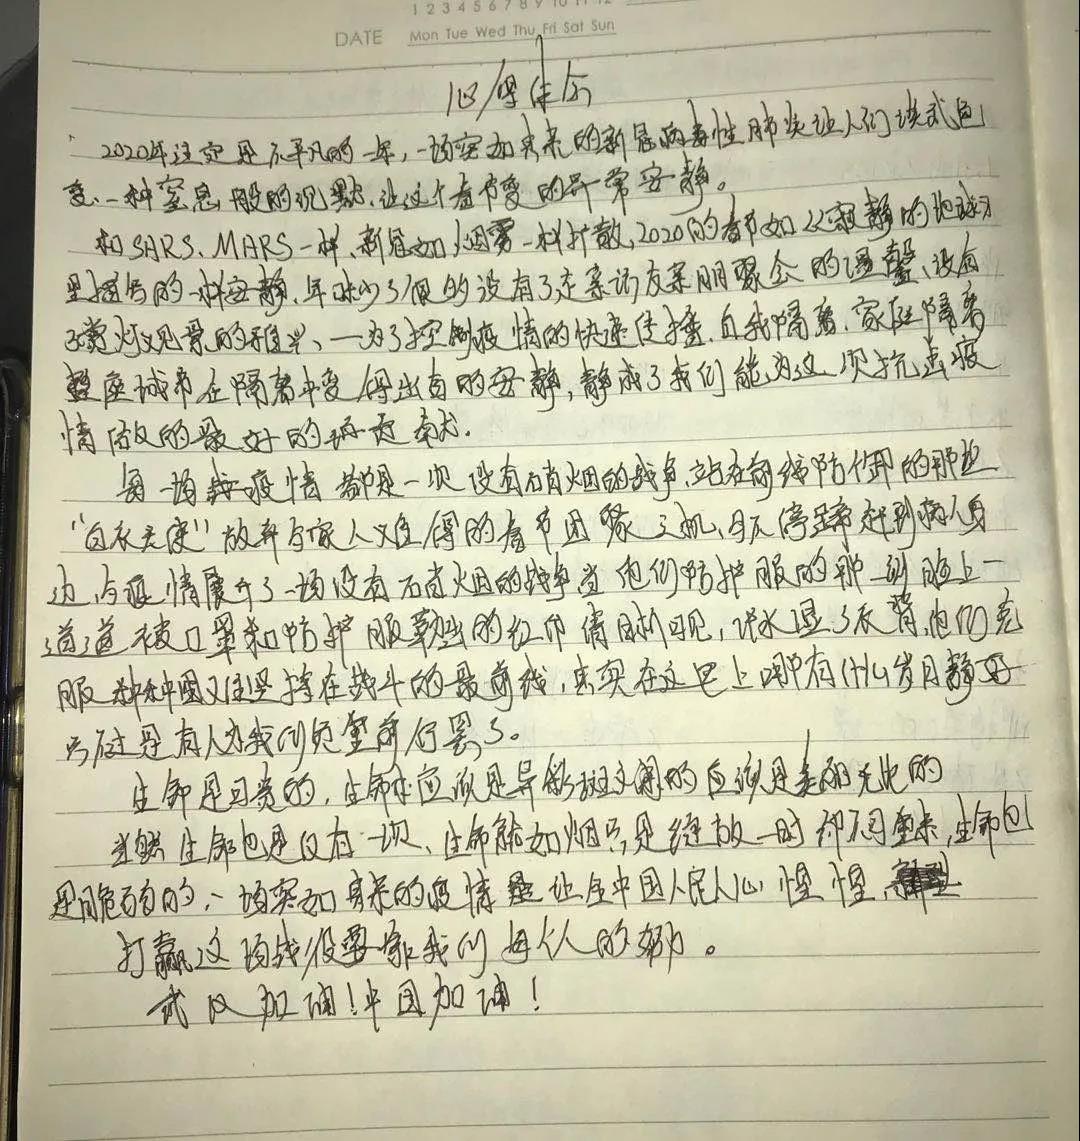 1 2 3 4 5 6 7 8 9 10 11 12
DATE Mon Tue Wed Thu Fri Sat Sun
心得体会
2020年注定是不平凡的一年,一场突如其来的新冠病毒性肺炎让人们谈武色
变、一种窒息般的沉默,让这个春节变的异常安静。
和SARS、MARS一样,新冠如烟雾一样扩散,2020的春节如以寂静的地球方
的一样安静,年味少了很多没有了走亲访友亲朋聚会的温馨、没有
了赏灯观景的雅兴、一为了控制疫情的快速传播,自我隔离,家庭隔离
整座城市在隔离中变得出奇的安静,静成了我们能为这次抗击疫
情做的最好的奉献.
每一场疫情都是一次没有硝烟的战争,站在前线防御的那些
“白衣天使”放弃与家人难得的春节团聚之机,马不停蹄赶到病人身
边,与疫情展开了一场没有硝烟的战争当他们防护服的那一刻脸上一
道道被口罩和防护服勒出的红印清晰可见,汗水湿了衣背,他们克
服种种困难坚持在战斗的最前线,其实在这世上哪有什么岁月静好
只不过是有人为我们负重前行罢了。
生命是可贵的,生命本应该是异彩斑斓的应该是美丽无比的
当然生命也是仅有一次、生命能如烟只是绽放一时却不可重来,生命也
是脆弱的,一场突如其来的疫情让全中国人民人心惶惶,
打赢这场战役要靠我们每个人的努力。
武汉加油!中国加油!